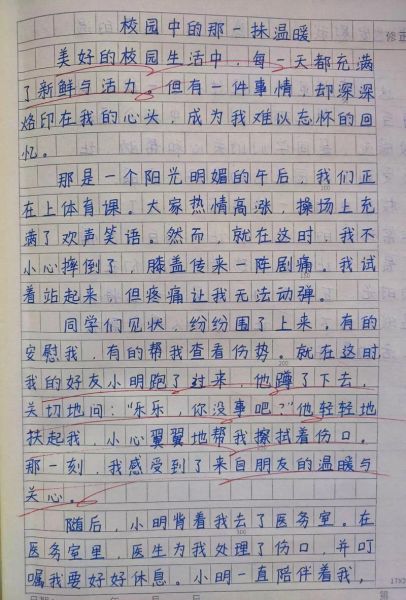 校园中的那一抹温暖
美好的校园生活中，每一天都充满
了新鲜与活力。但有一件事情，却深深
烙印在我的心头，成为我难以忘怀的回
忆。
那是一个阳光明媚的午后，我们正
在上体育课。大家热情高涨，操场上充
满了欢声笑语。然而，就在这时，我不
小心摔倒了，膝盖传来一阵剧痛。我试
着站起来，但疼痛让我无法动弹。
同学们见状，纷纷围了上来，有的
安慰我，有的帮我查看伤势。就在这时，
我的好友小明跑了过来，他蹲了下去，
关切地问：“乐乐，你没事吧？”他轻轻地
扶起我，小心翼翼地帮我擦拭着伤口。
那一刻，我感受到了来自朋友的温暖与
关心。
随后，小明背着我去了医务室。在
医务室里，医生为我处理了伤口，并叮
嘱我要好好休息。小明一直陪伴着我，